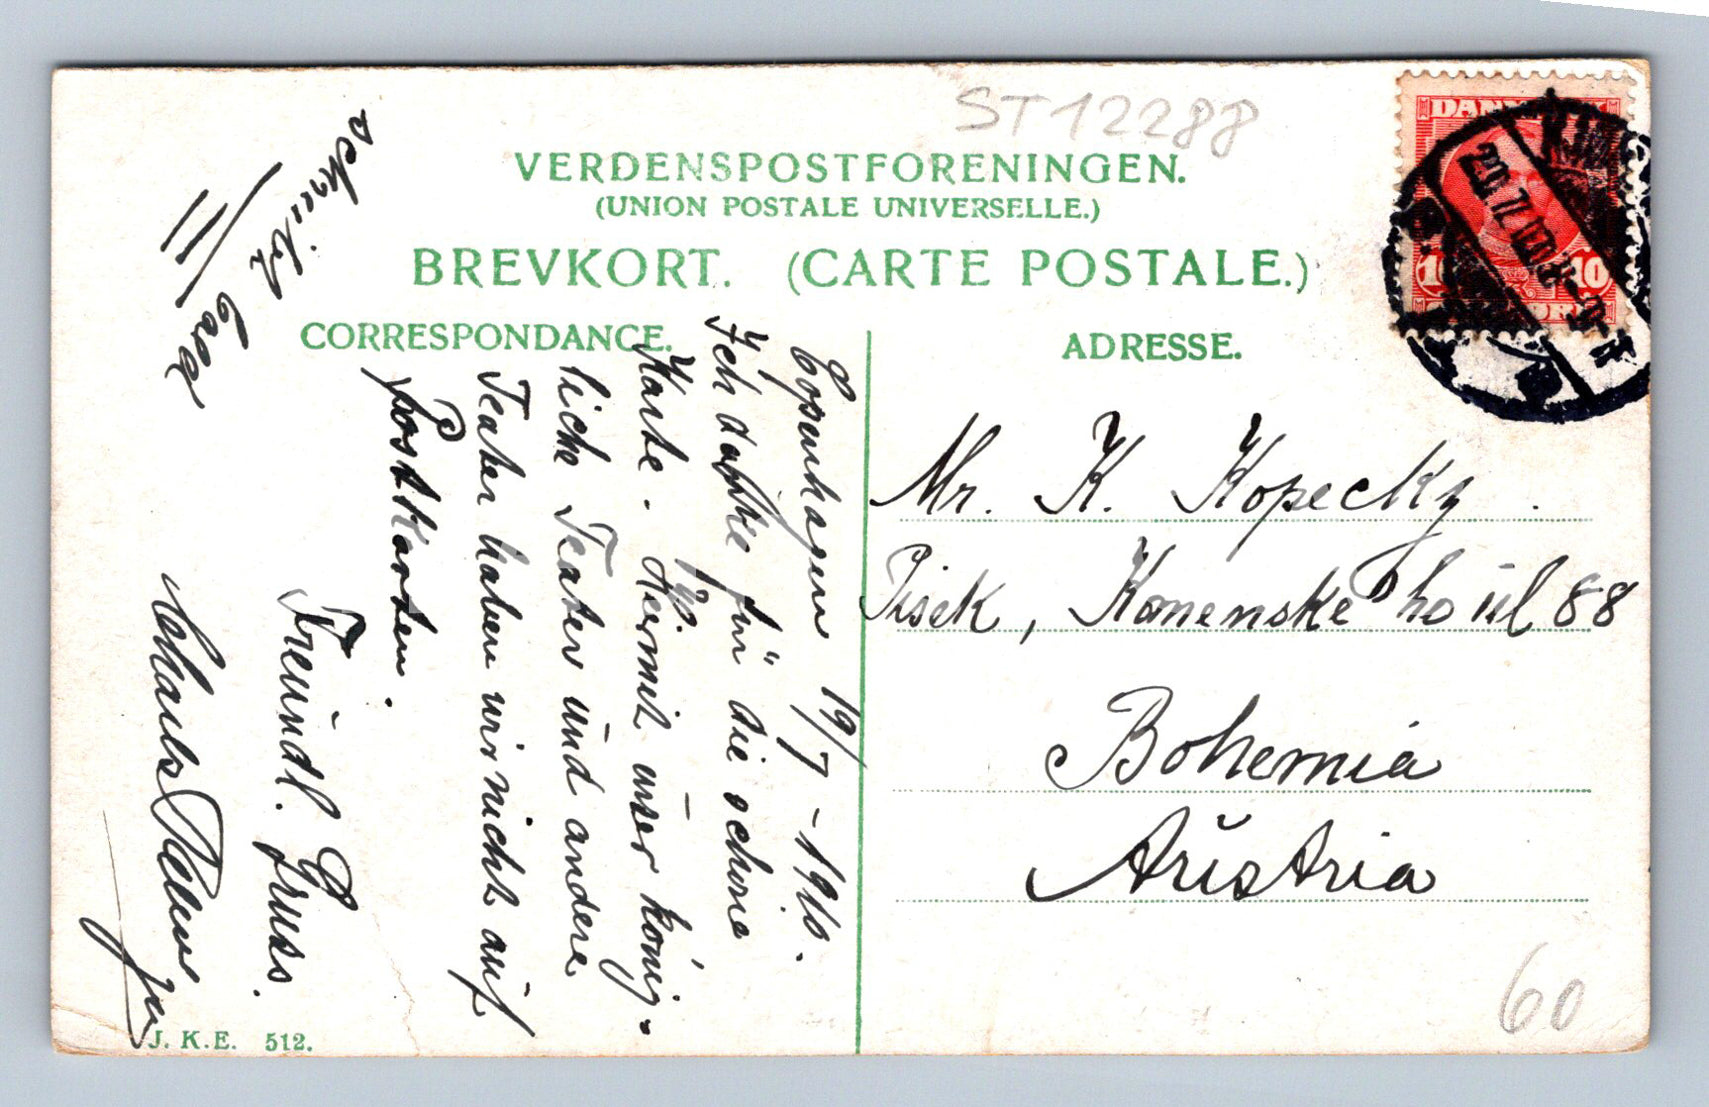 ST12288
VERDENSPOSTFORENINGEN.
(UNION POSTALE UNIVERSELLE.)
BREVKORT. (CARTE POSTALE.)
CORRESPONDANCE.
ADRESSE.
DANMARK
10 10
Copenhagen 19/7 - 1910.
Ich danke für die schöne
Karte. Hiermit unser könig-
liche Teater und andere
Teater haben wir nicht auf
Postkarten.
Freundl. Gruss.
Charles
jun
schreib bald
!!
Mr. K. Kopecky.
Pisek, Komenského ul 88
Bohemia
Austria
60
J. K. E. 512.